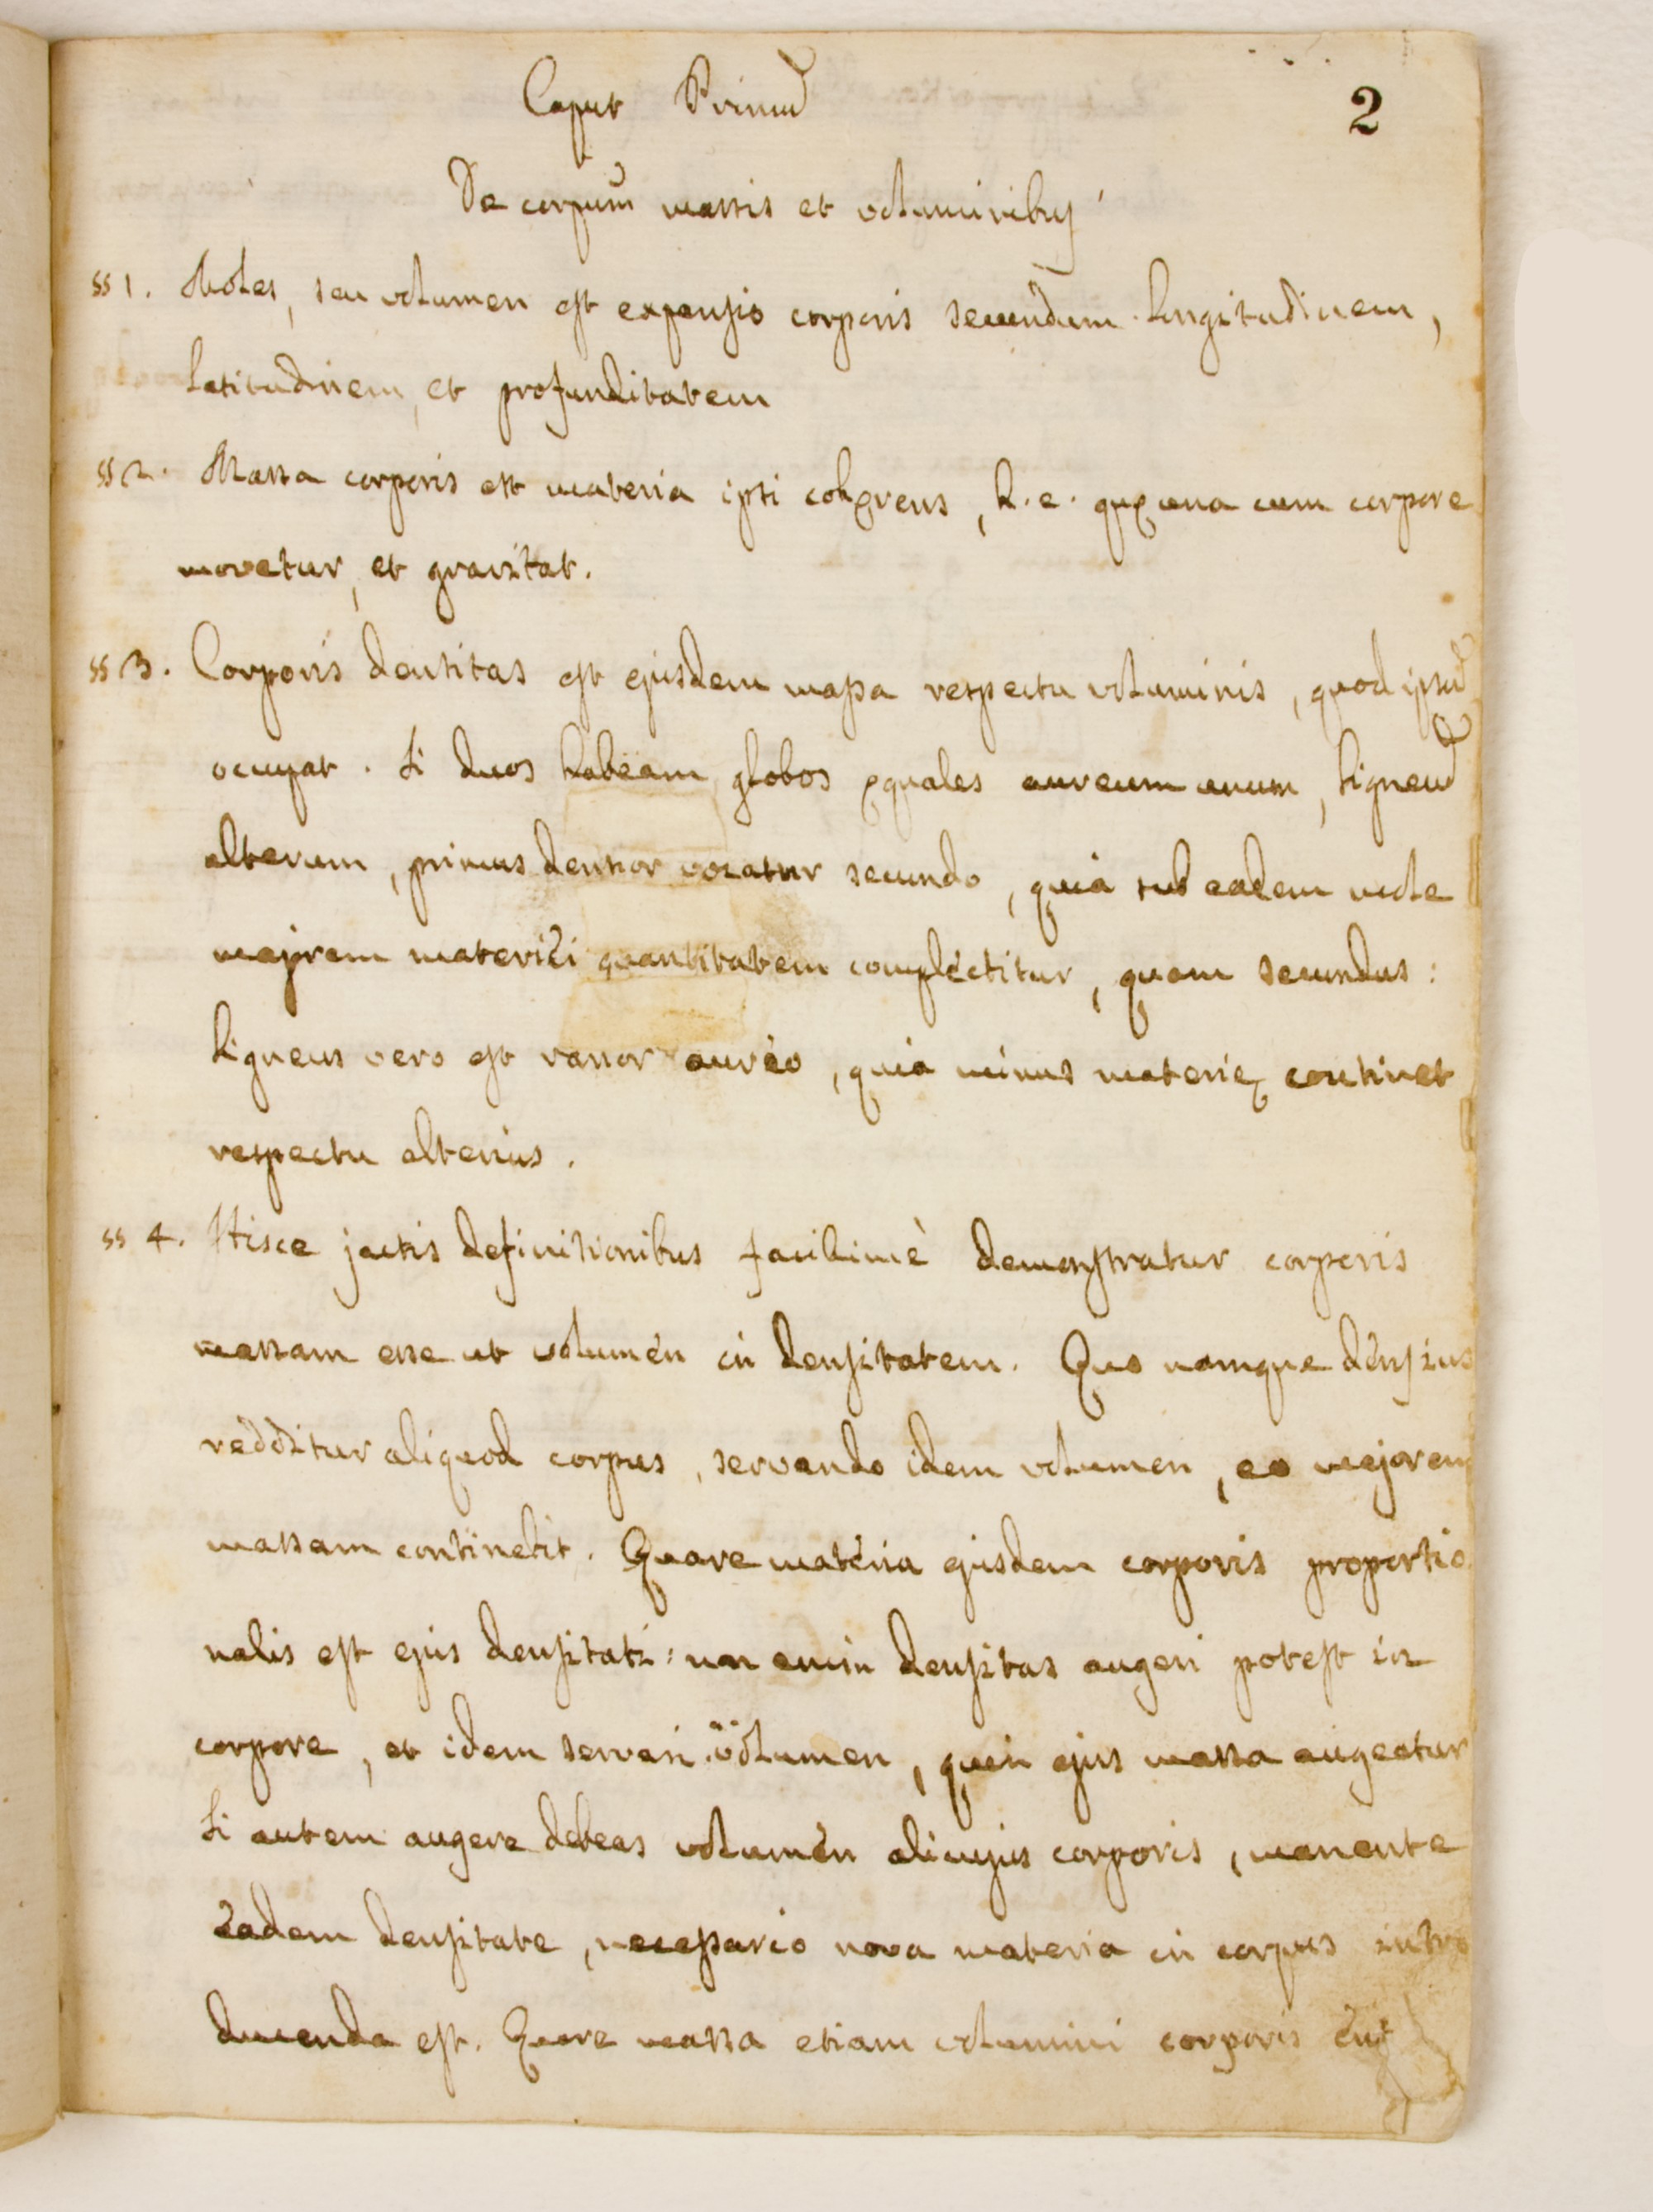 Caput Primũ
2
De corpum̃ massis et voluminibus
§§ 1. Moles, seu volumen est expensio corporis secundum longitudinem,
latitudinem, et profunditatem
§§ 2. Massa corporis est materia ipsi cohęrens, h. e. quę una cum corpore
movetur, et gravitat.
§§ 3. Corporis densitas est ejusdem massa respectu voluminis, quod ipsũ
occupat. Si duos habeam globos ęquales aureum unum, ligneũ
alterum, primus densior vocatur secundo, quia sub eadem mole
majorem materiei quantitatem complectitur, quam secundus:
ligneus vero est rarior aureo, quia minus materię continet
respectu alterius.
§§ 4. Hisce jactis definitionibus facilimè demonstratur corporis
massam esse ut volumen in densitatem. Quo namque densius
redditur aliquod corpus, servando idem volumen, eo majorem
massam continebit. Quare materia ejusdem corporis proportio
nalis est ejus densitati: non enim densitas augeri potest in
corpore, et idem servari volumen, quin ejus massa augeatur
Si autem augere debeas volumen alicujus corporis, manente
eadem densitate, necessario nova materia in corpus intro
ducenda est. Quare massa etiam volumini corporis erit